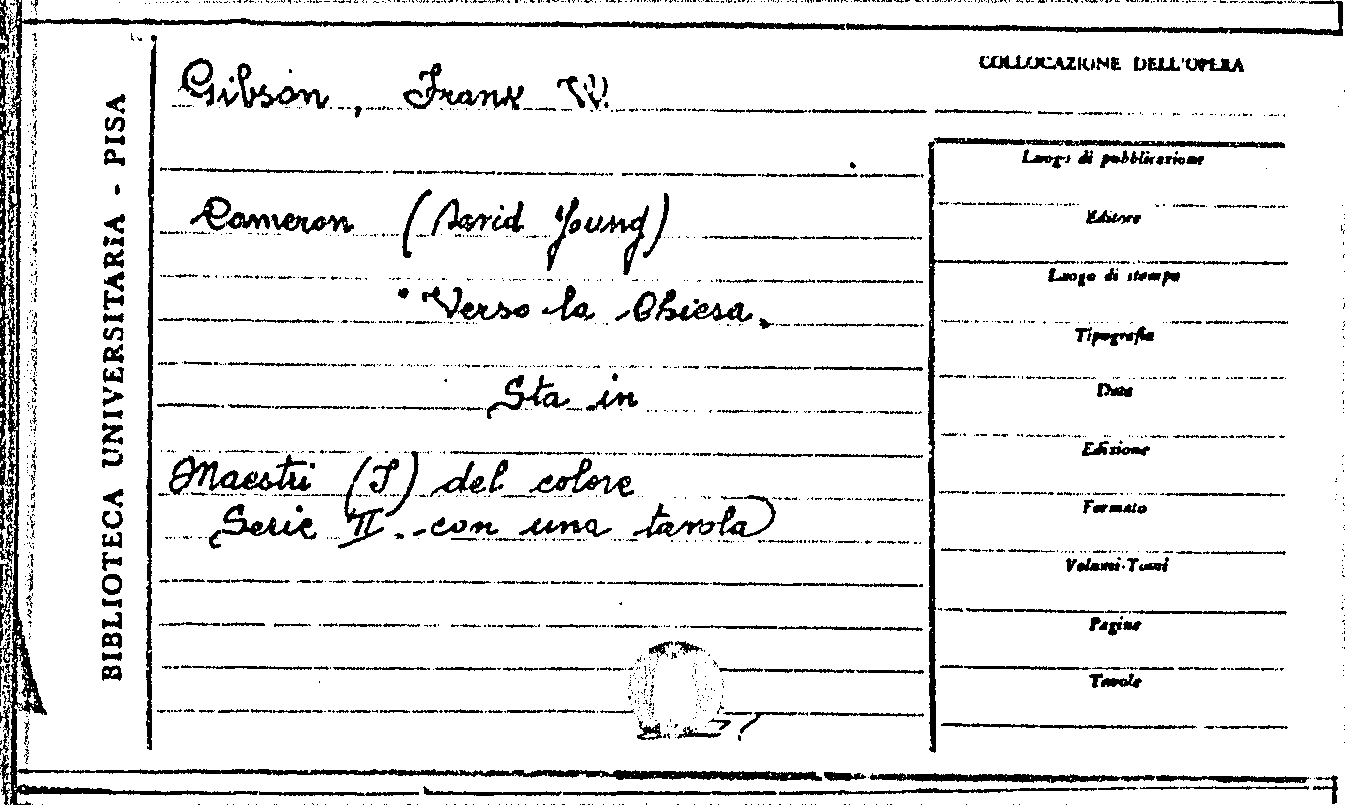 BIBLIOTECA UNIVERSITARIA - PISA
Gibson, Frank W.
Cameron (David Young)
"Verso la Chiesa„
Sta in
Maestri (I) del colore
Serie II. con una tavola)
COLLOCAZIONE DELL'OPERA
Luogo di pubblicazione
Editore
Luogo di stampa
Tipografia
Data
Edizione
Formato
Volumi-Tomi
Pagine
Tavole